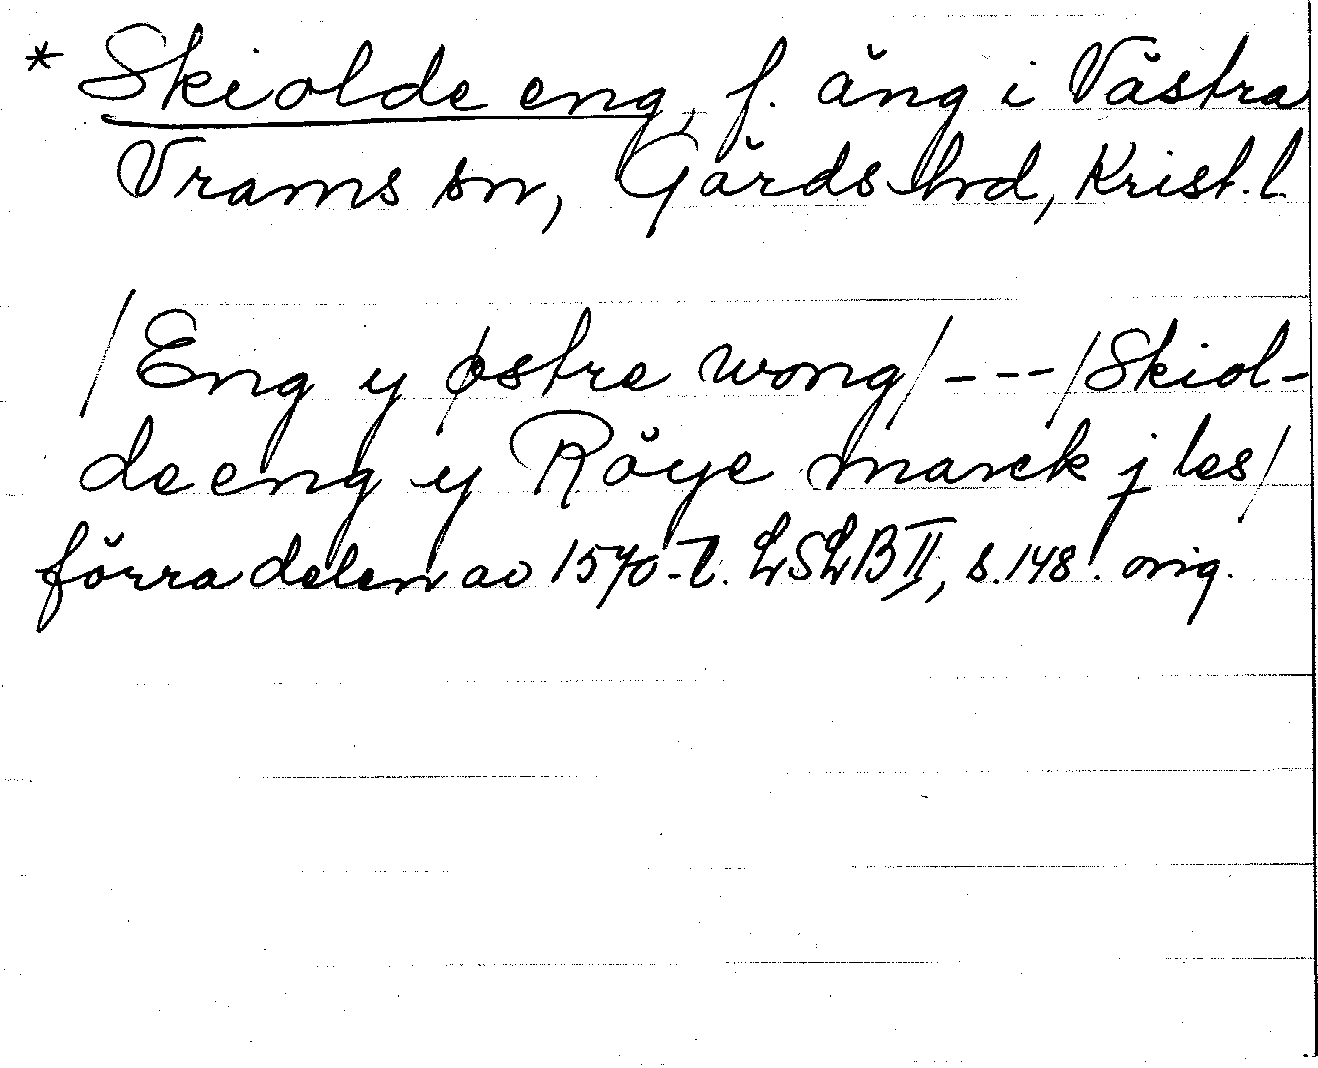 * Skiolde eng, f. äng i Västra
Vrams sn, Gärds hd, Krist. l.
/Eng y østre wong/ - - - /Skiol-
de eng y Röye marck j les/
förra delen av 1570-t. LSLB II, s. 148. orig.